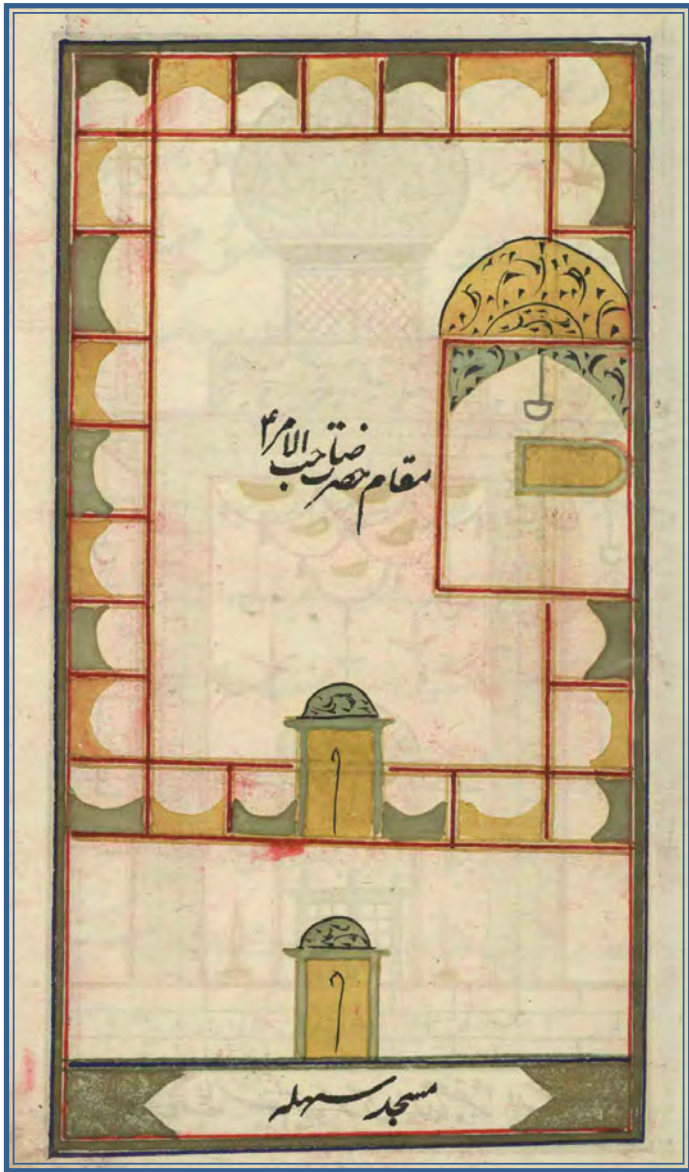 مقام حضرت صاحب الامر ع
مسجد سهله